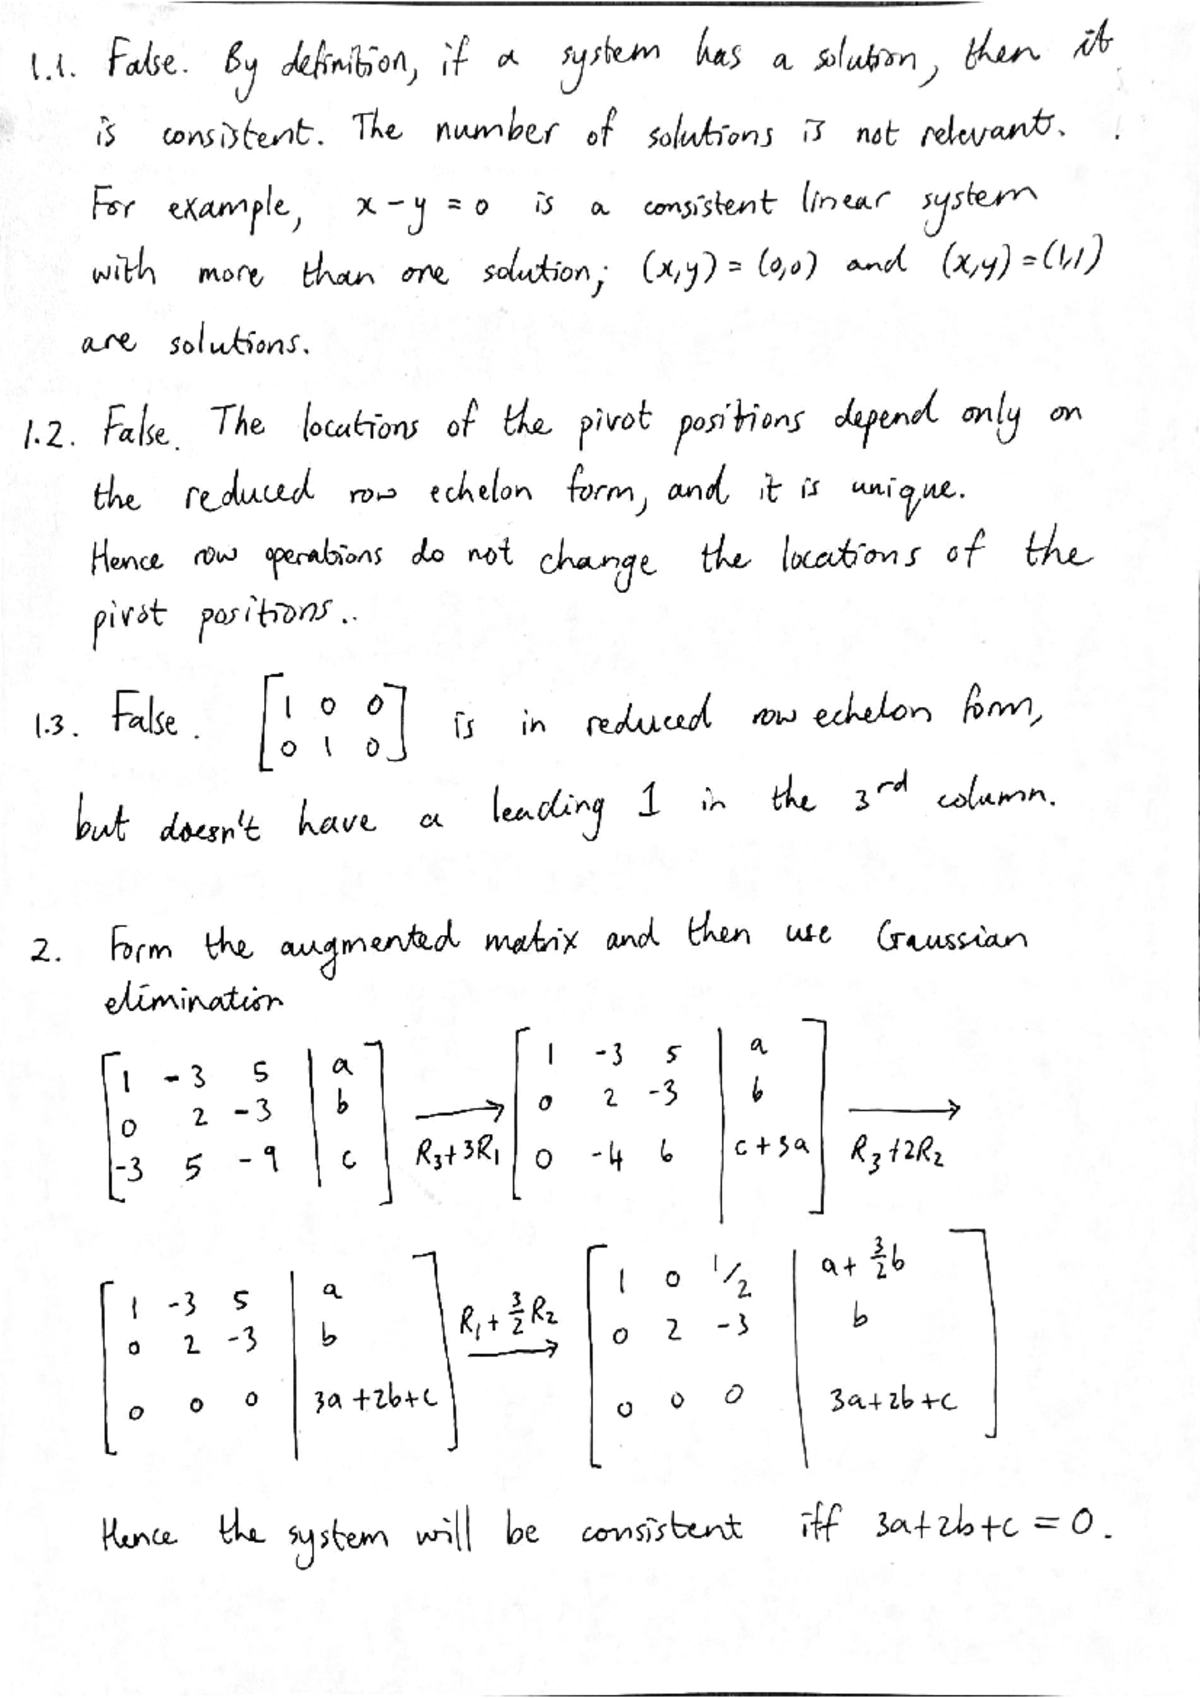 1.1. False. By definition, if a system has a solution, then it
is consistent. The number of solutions is not relevant.
For example, x - y = 0 is a consistent linear system
with more than one solution; (x,y) = (0,0) and (x,y) = (1,1)
are solutions.
1.2. False. The locations of the pivot positions depend only on
the reduced row echelon form, and it is unique.
Hence row operations do not change the locations of the
pivot positions..
1.3. False. [1 0 0; 0 1 0] is in reduced row echelon form,
but doesn't have a leading 1 in the 3rd column.
2. Form the augmented matrix and then use Gaussian
elimination
[1 -3 5 | a; 0 2 -3 | b; -3 5 -9 | c] → R3+3R1 [1 -3 5 | a; 0 2 -3 | b; 0 -4 6 | c+3a] → R3+2R2
[1 -3 5 | a; 0 2 -3 | b; 0 0 0 | 3a+2b+c] R1+3/2R2 → [1 0 1/2 | a+3/2b; 0 2 -3 | b; 0 0 0 | 3a+2b+c]
Hence the system will be consistent iff 3a+2b+c = 0.